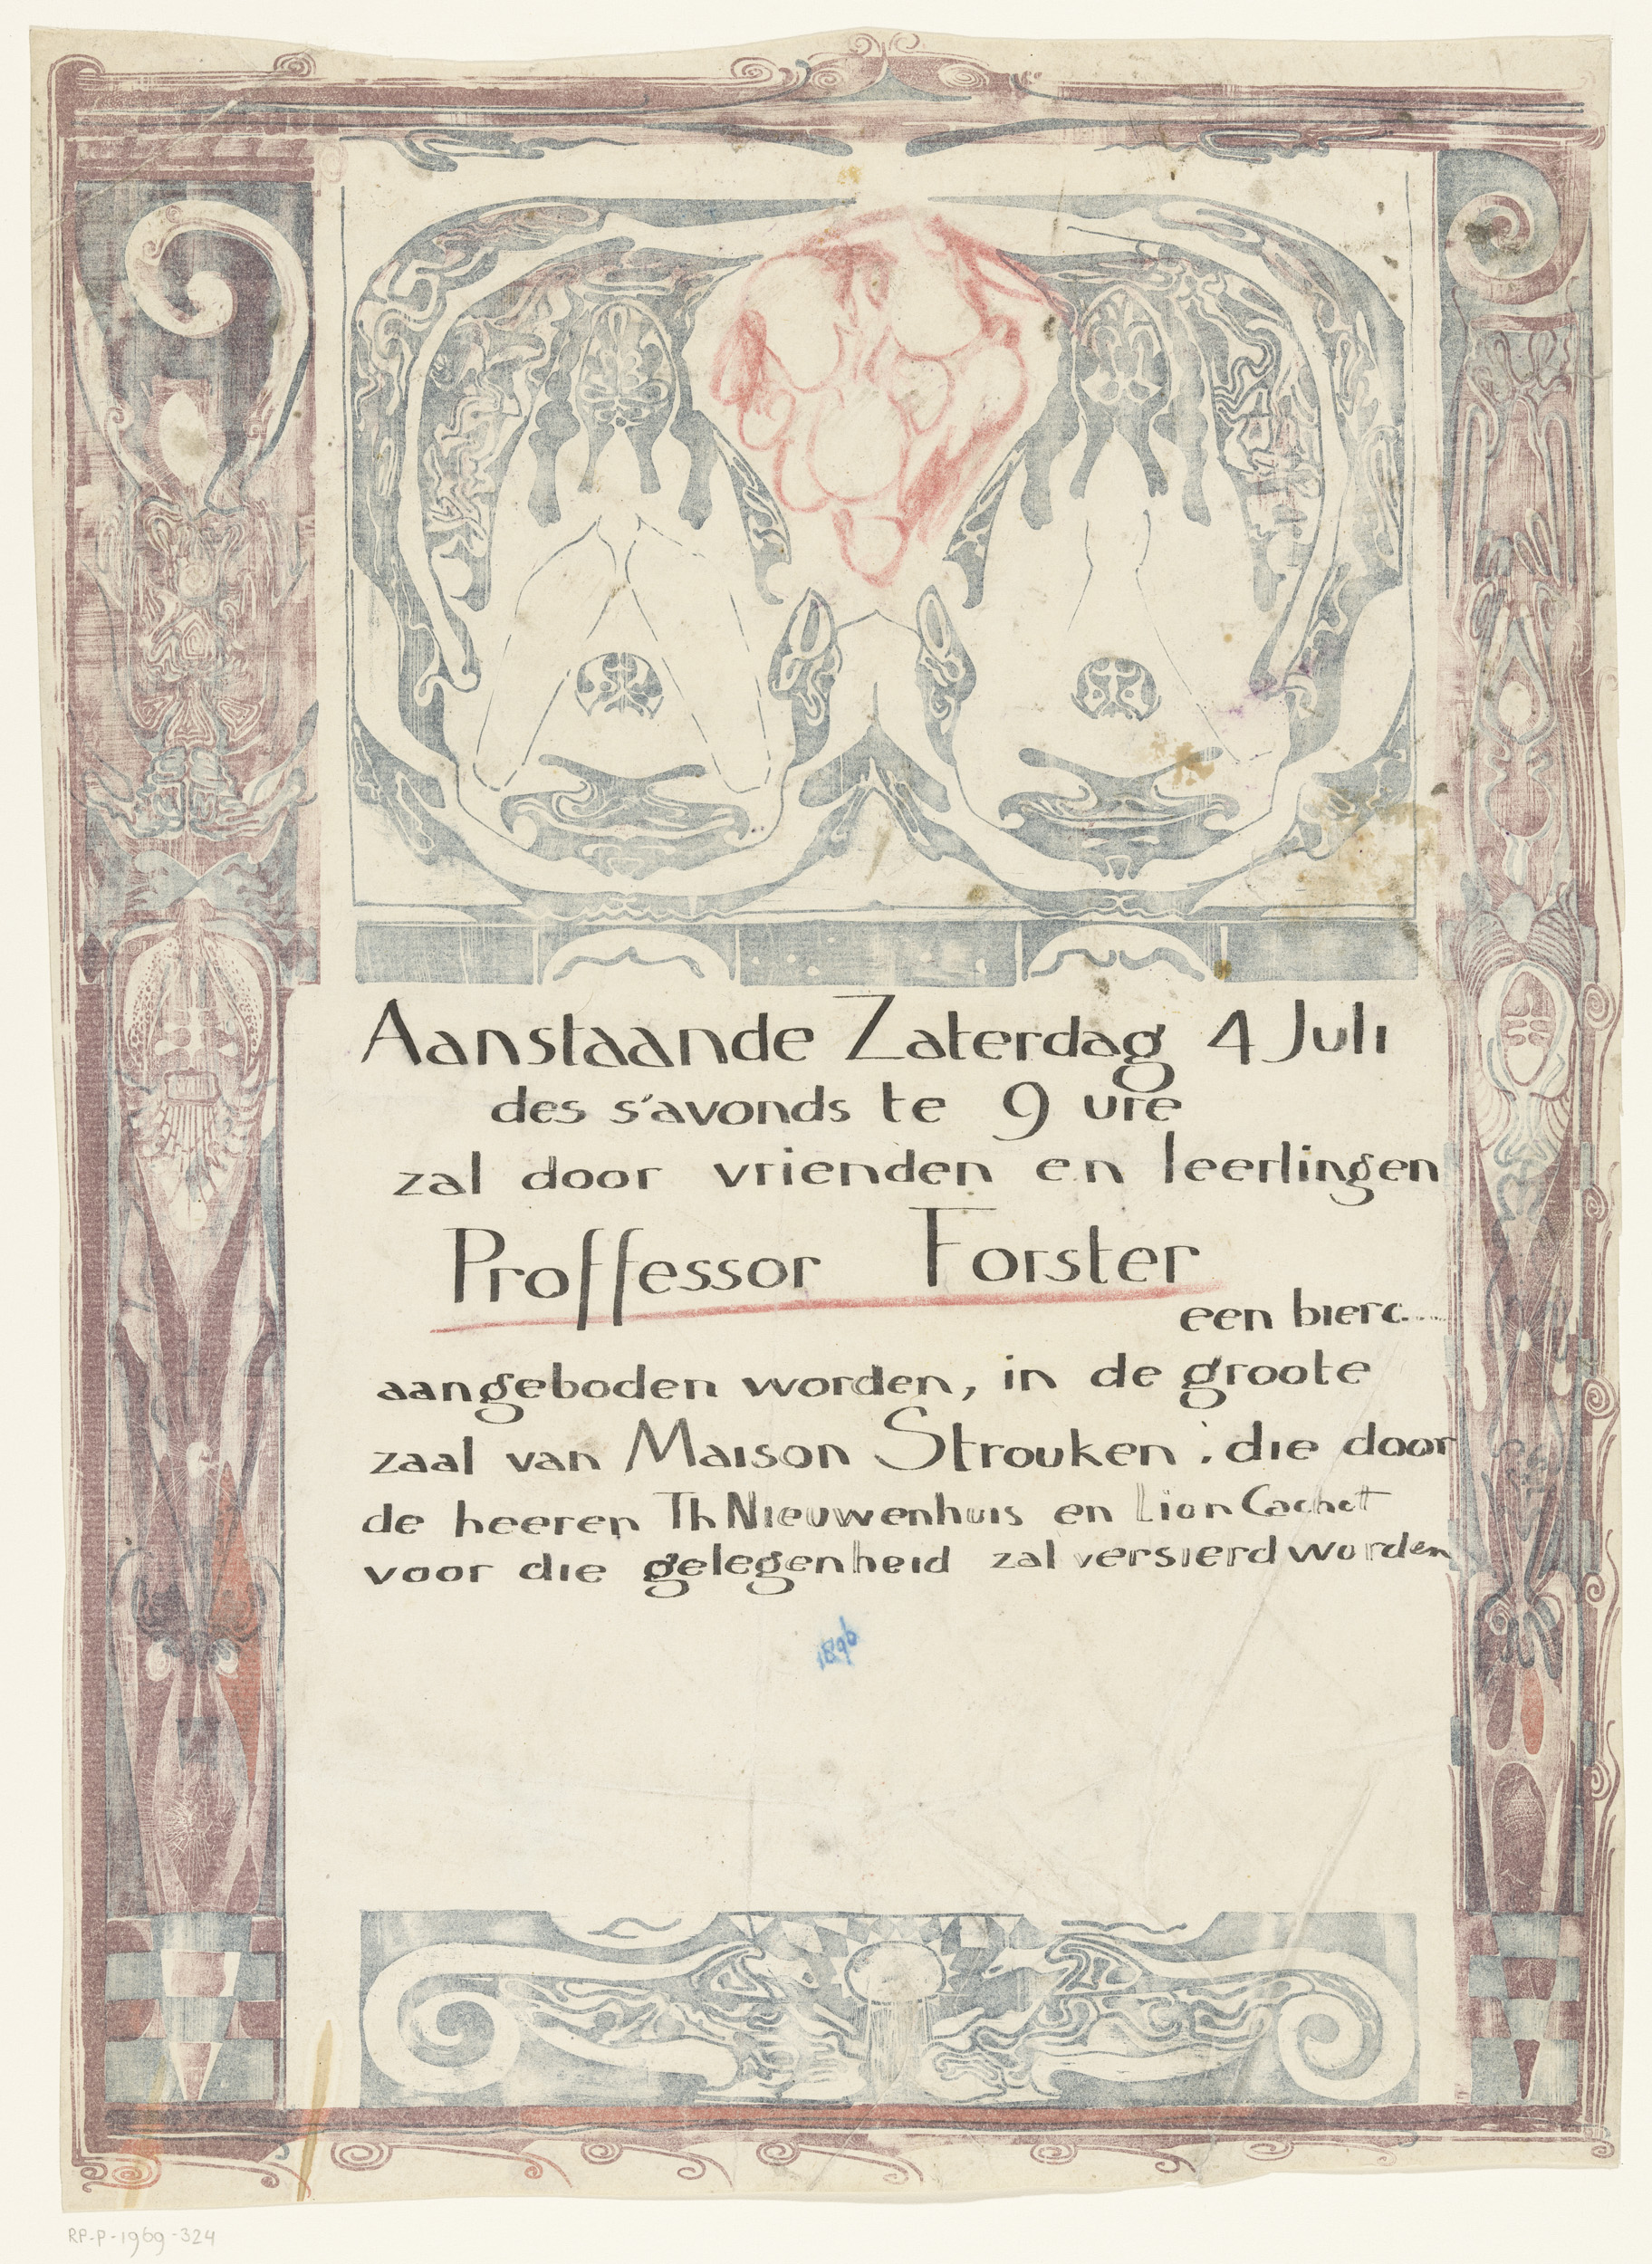 Aanstaande Zaterdag 4 Juli
des s'avonds te 9 ure
zal door vrienden en leerlingen
Proffessor Forster
een bierc....
aangeboden worden, in de groote
zaal van Maison Strouken. die door
de heeren Th Nieuwenhuis en Lion Cachet
voor die gelegenheid zal versierd worden
1896
RP-P-1969-324